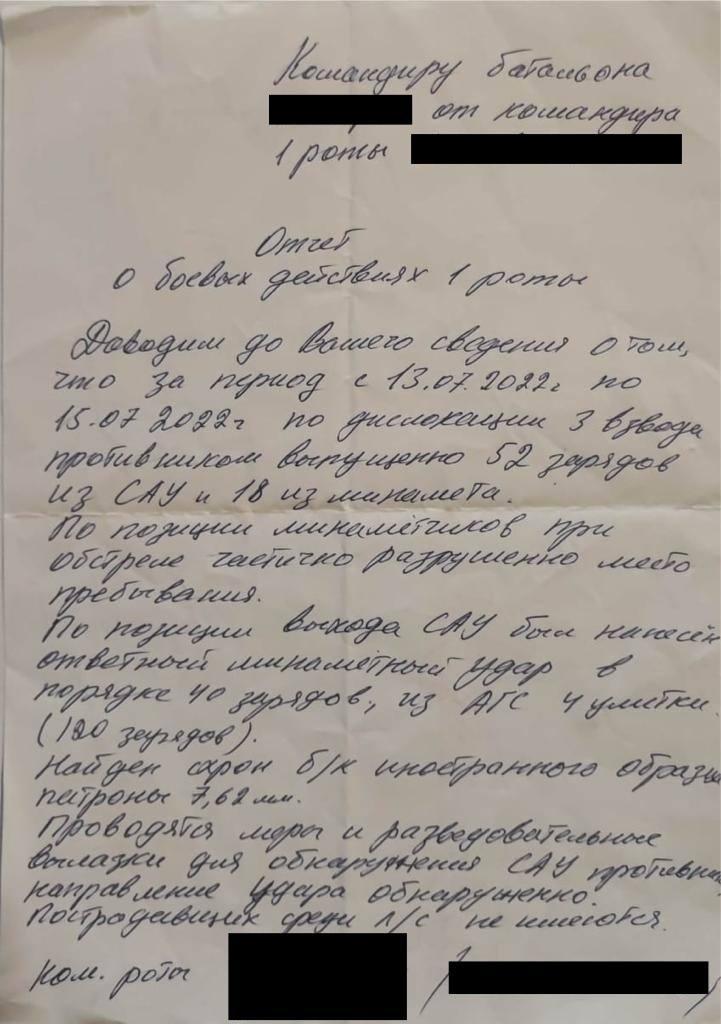 Командиру батальона
от командира
1 роты
Отчет
о боевых действиях 1 роты
Доводим до Вашего сведения о том,
что за период с 13.07.2022г по
15.07 2022г по дислокации 3 взвода
противником выпущенно 52 зарядов
из САУ и 18 из минамёта.
По позиции минамётчиков при
обстреле частично разрушенно место
пребывания.
По позиции выхода САУ был нанесён
ответный минамётный удар в
порядке 40 зарядов, из АГС 4 улитки.
(120 зарядов).
Найден схрон б/к иностранного образца
патроны 7,62 мм.
Проводятся меры и разведовательные
вылазки для обнаружения САУ противника
направление удара обнаруженно.
Пострадавших среди л/с не имеются.
Ком. роты